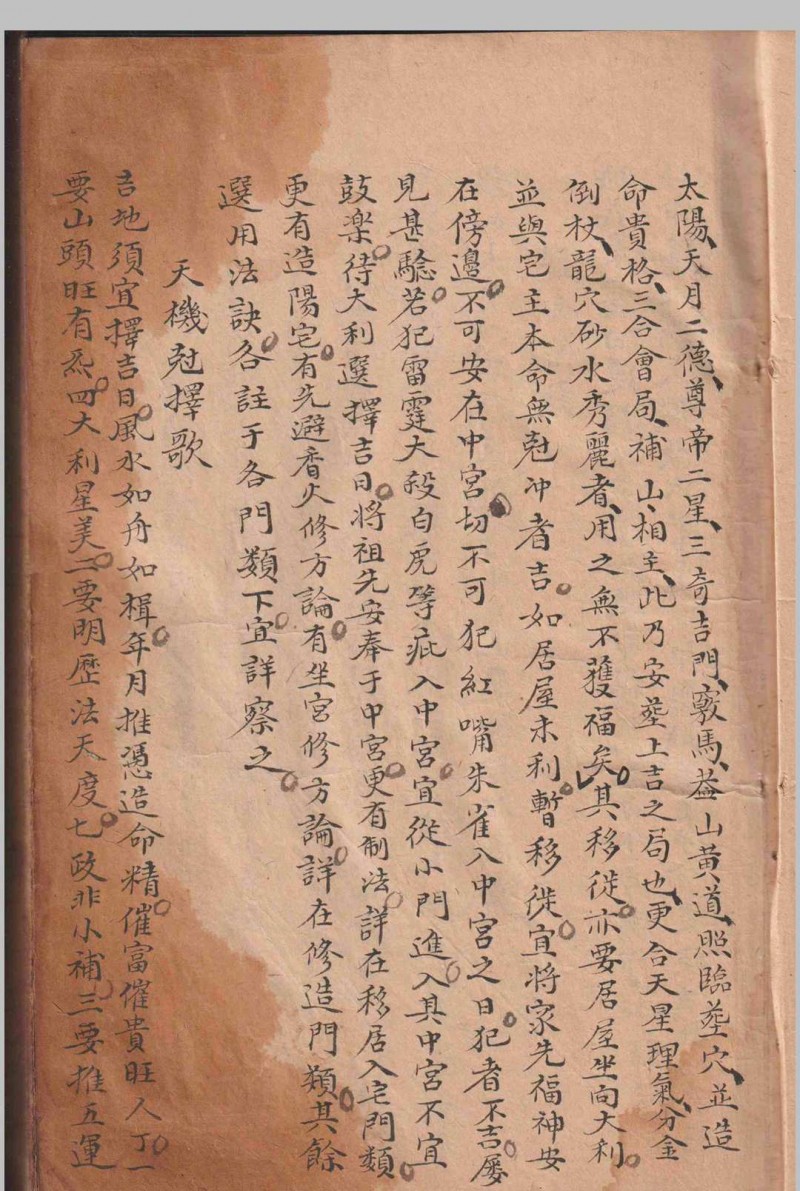 太陽、天月二德、尊帝二星、三奇吉門、竅馬、蓋山黃道、照臨塟穴、並造
命貴格、三合會局、補山、相主、此乃安塟上吉之局也、更合天星理氣、分金
倒杖、龍穴砂水秀麗者、用之無不獲福矣。其移徙。亦要居屋坐向大利。
並與宅主本命無尅冲者吉。如居屋未利。暫移徙。宜將家先福神安
在傍邊。不可安在中宮。切不可犯紅嘴朱雀入中宮之日。犯者不吉。屡
見甚驗。若犯雷霆大殺白虎等疵入中宮。宜從小門進入。其中宮不宜
鼓楽。待大利選擇吉日。將祖先安奉于中宮。更有制法。詳在移居入宅門類。
更有造陽宅。有先避香火修方論。有坐宮修方論。詳在修造門類。其餘
選用法訣。各註于各門類下。宜詳察之。
天機尅擇歌
吉地須宜擇吉日。風水如舟如楫。年月推憑造命精。催富催貴旺人丁。一
要山頭旺有炁。四大利星美。二要明歷法天度。七政非小補。三要推五運